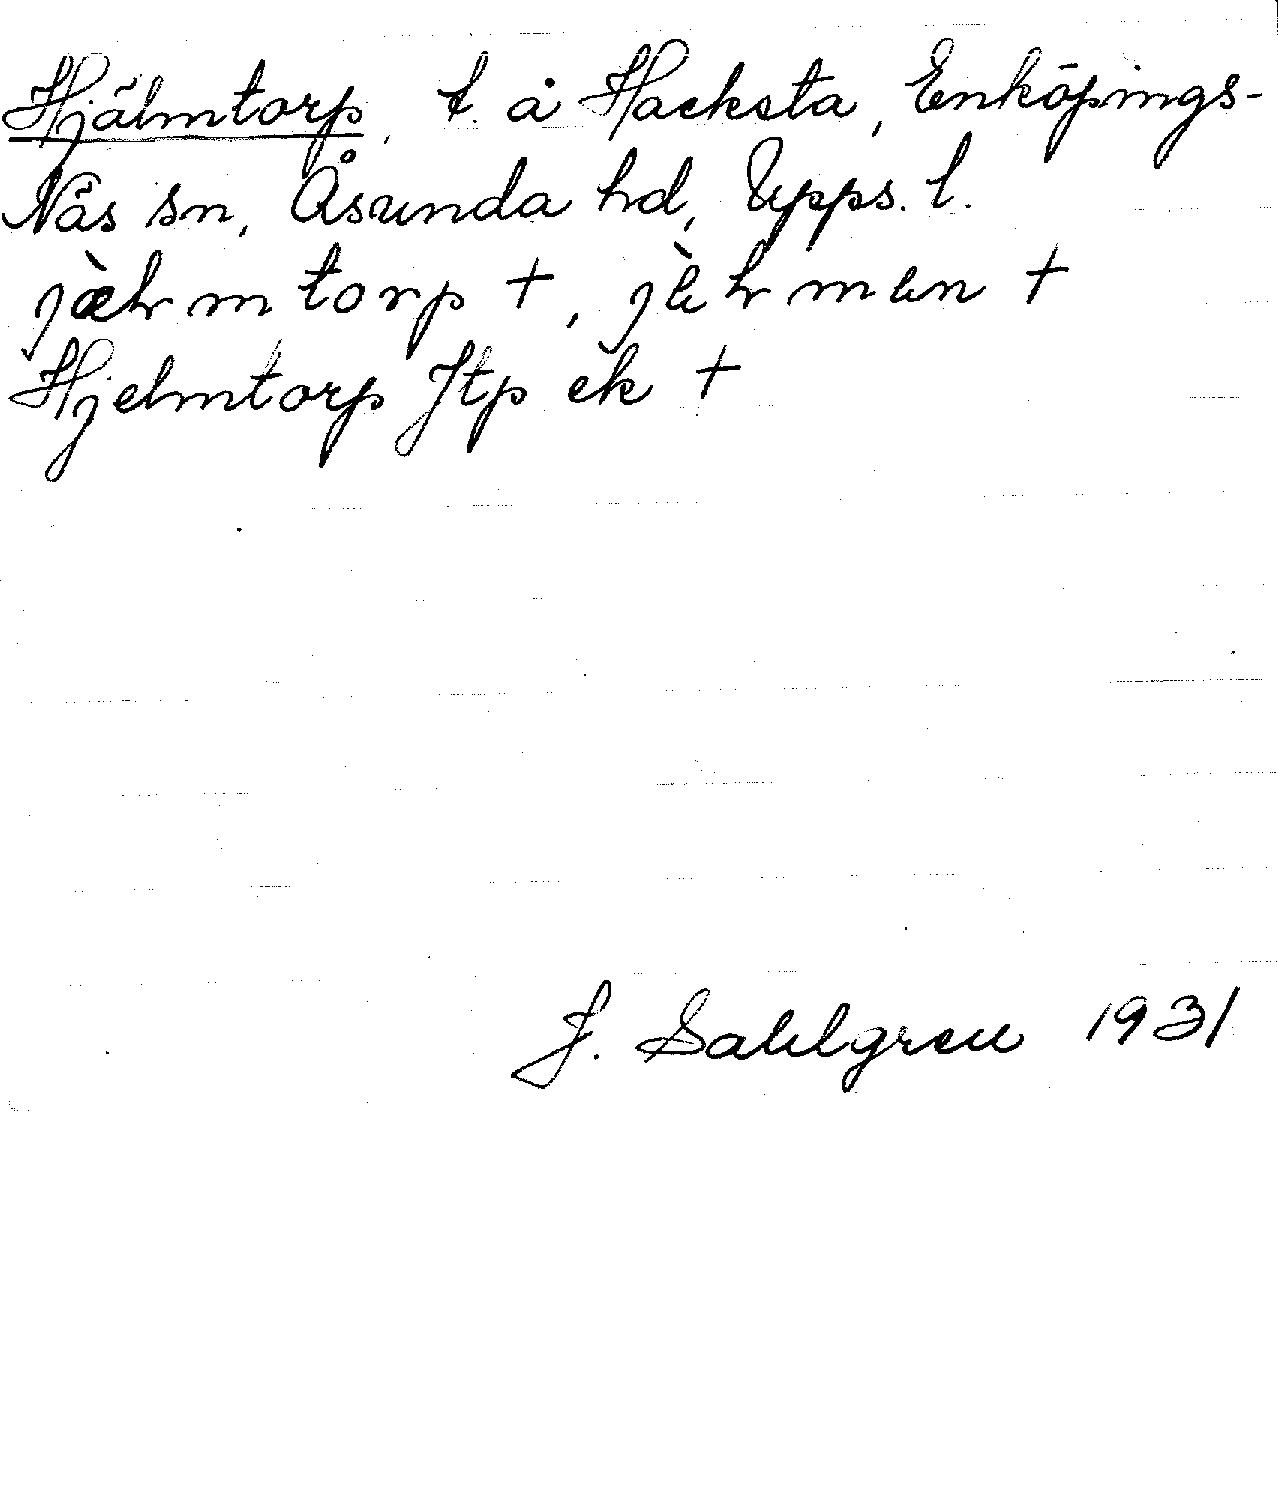 Hjälmtorp, t. å Hacksta, Enköpings-
Näs sn, Åsunda hd, Upps. l.
Hjelmtorp Jtp ek +
J. Sahlgren 1931